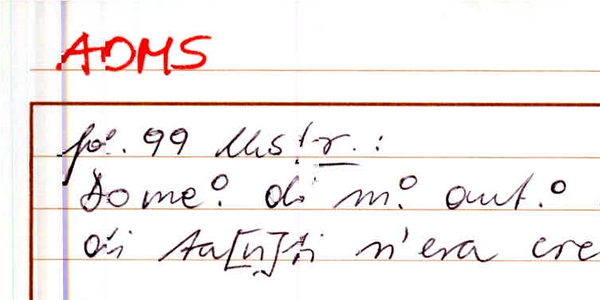 ADMS
fo. 99 Mstr.:
Domeº di mº antº
di ta[n]ti n'era cre